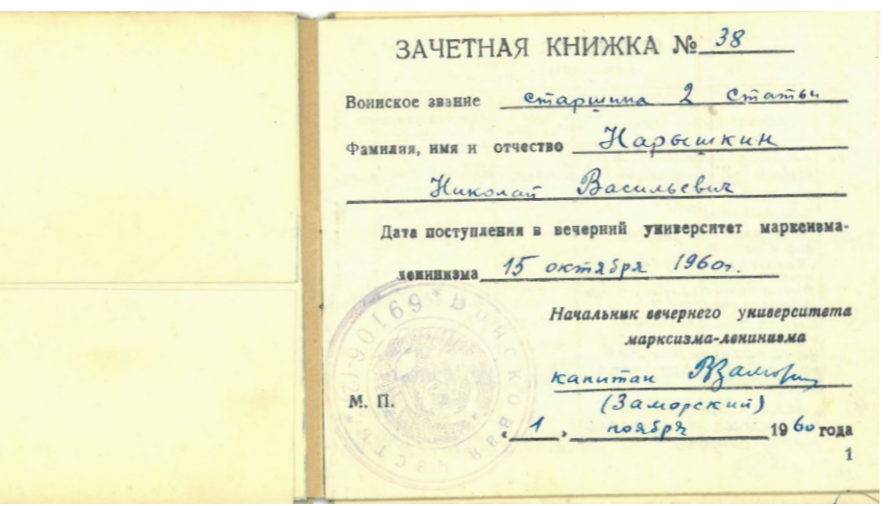 ЗАЧЕТНАЯ КНИЖКА № 38
Воинское звание старшина 2 статьи
Фамилия, имя и отчество Нарышкин
Николай Васильевич
Дата поступления в вечерний университет марксизма-
ленинизма 15 октября 1960г.
Начальник вечернего университета
марксизма-ленинизма
капитан
М. П. (Заморский)
„ 1 „ ноября 1960 года
1
ВОЙСКОВАЯ ЧАСТЬ